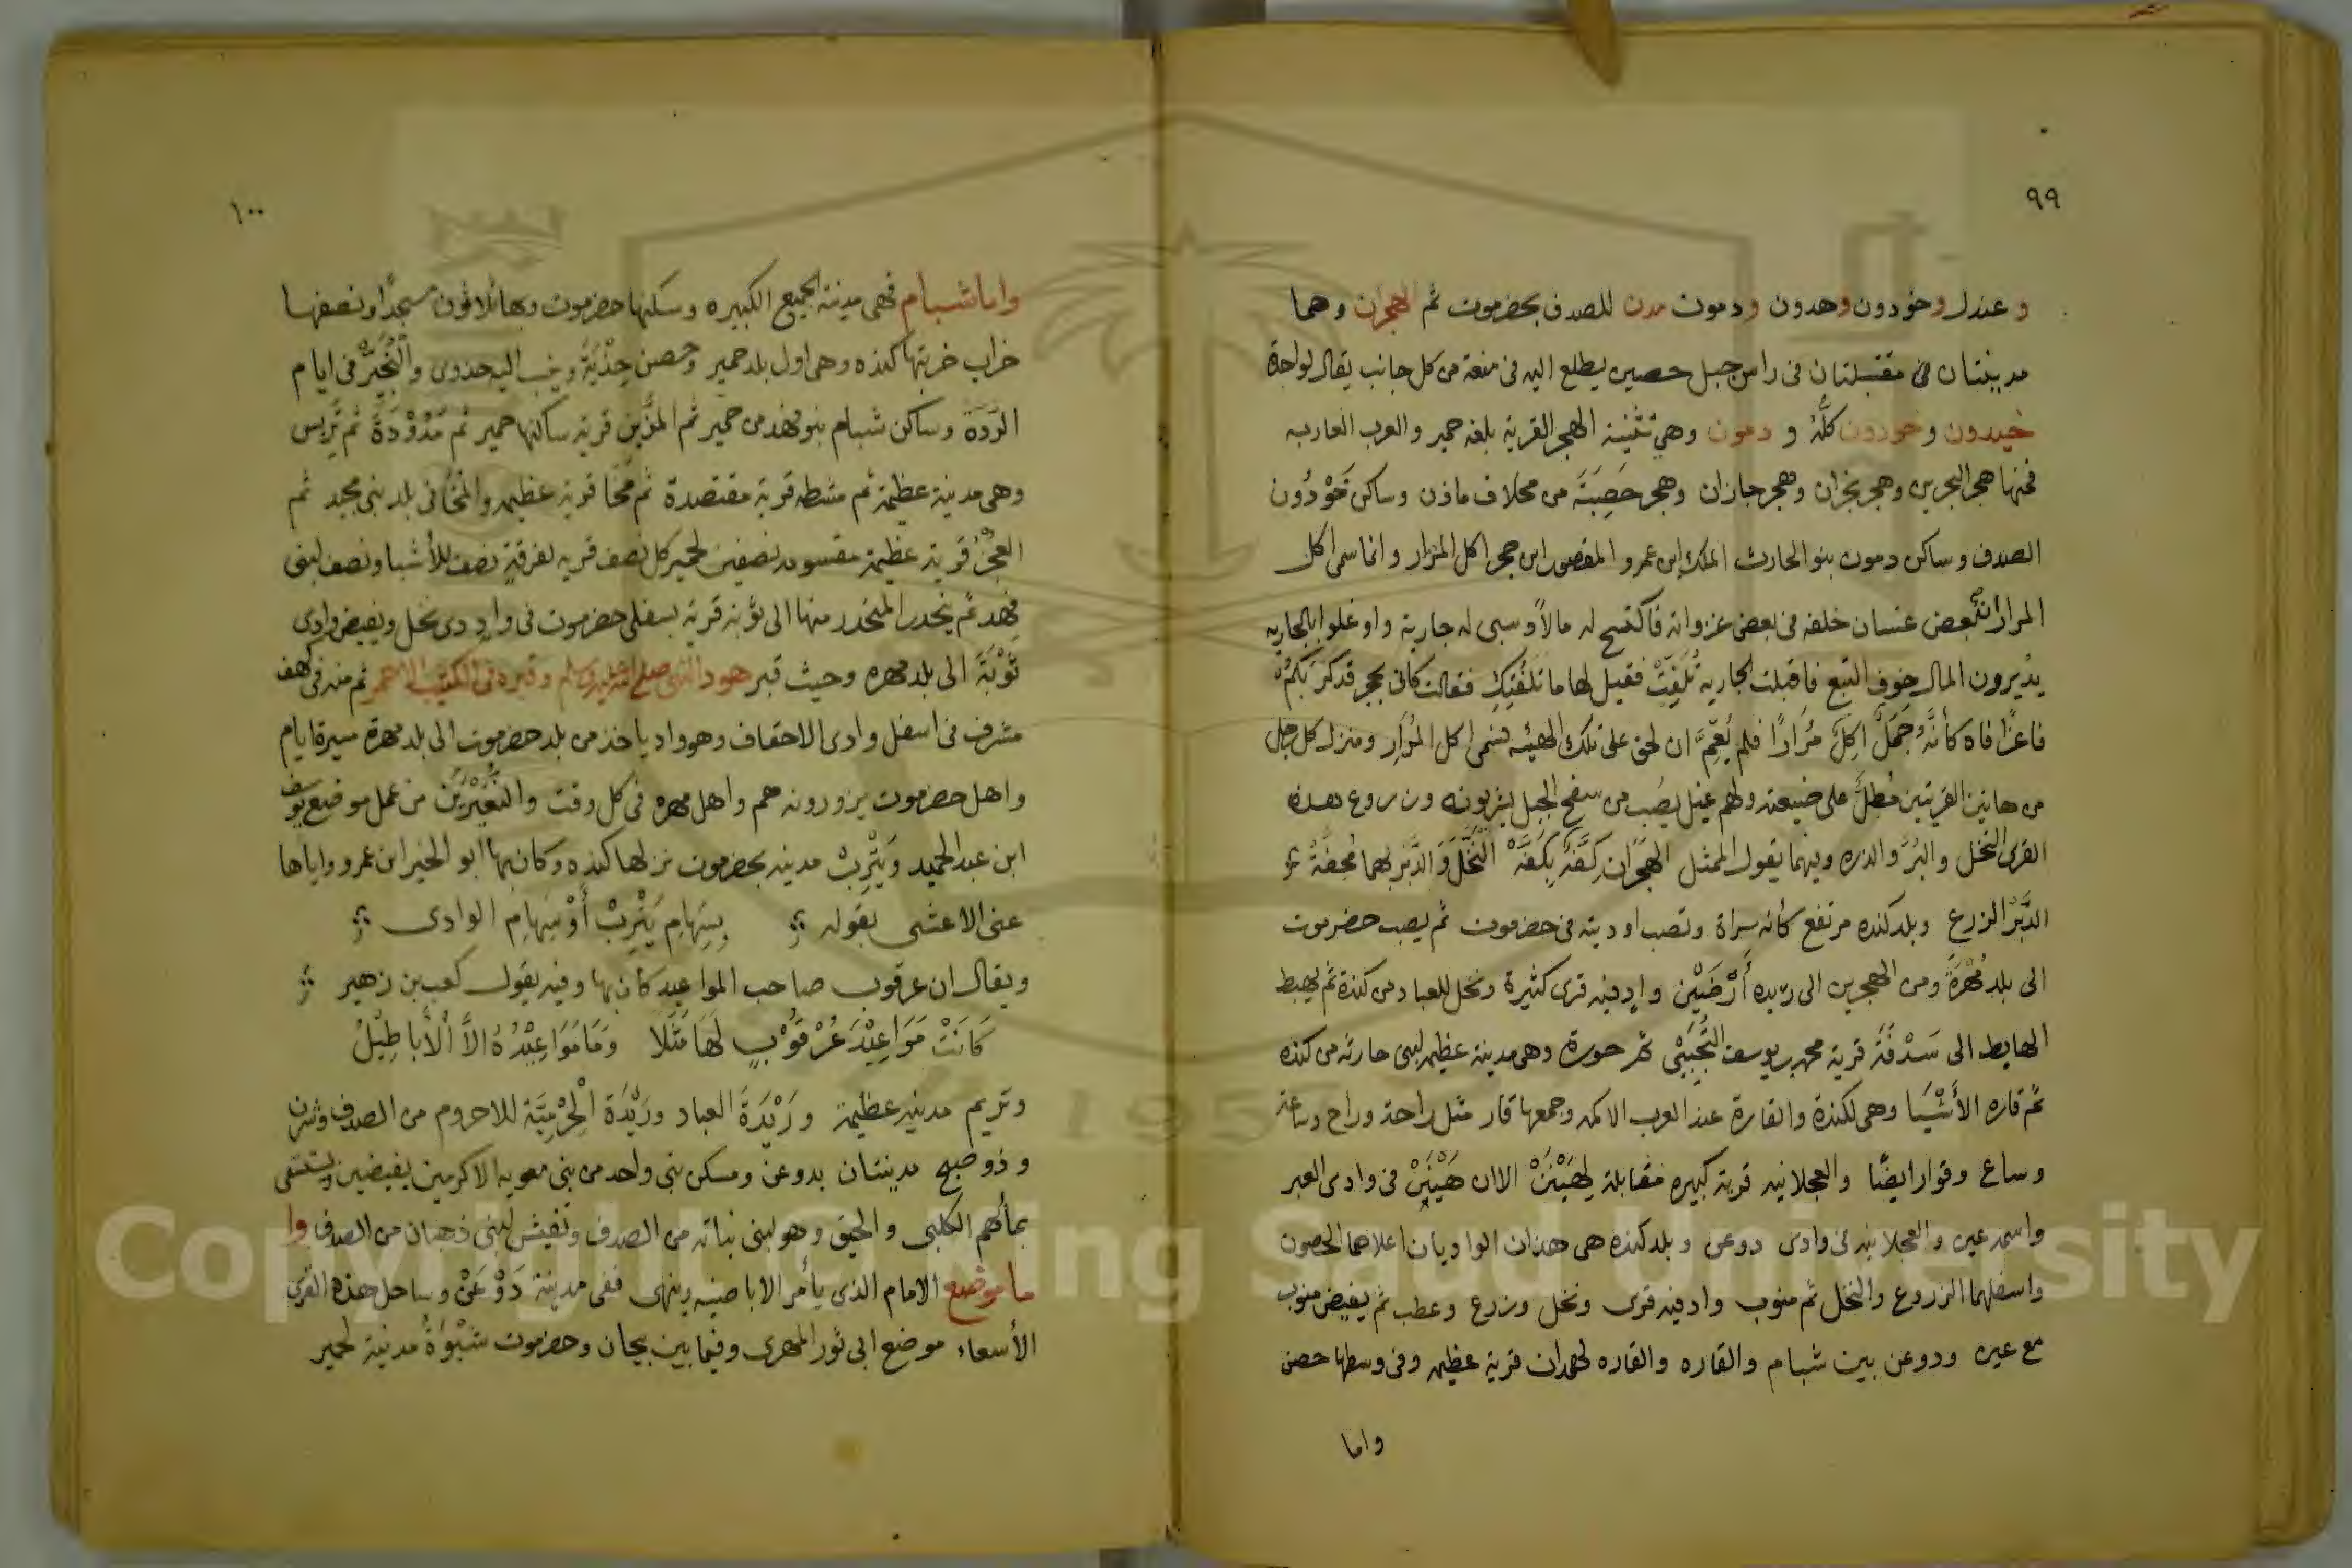 ٩٩
و عندل وخودون وهدون ودمون مدن للصدف بحضرموت ثم الهجران وهما
مدينتان مقتبلتان فى راس جبل حصين يطلع اليه فى منعة من كل جانب يقال لواحدة
خيدون وخودون كلٌّ و دمون وهى تثنية الهجر القرية بلغة حمير والعرب العاربه
فمنها هجر البحرين وهجر نجران وهجر جازان وهجر حَصِبَة من مخلاف ماذن وساكن خَوْدُون
الصدف وساكن دمون بنو الحارث الملك ابن عمرو المقصور ابن حجر اكل المرار وانما سمى اكل
المرار ان بعض غسان خلفه فى بعض غزواته فاكتسح له مالاً وسبى له جارية واوغلوا بالجاريه
يديرون المال خوف التبع فاقبلت الجاريه تُلَفِّتْ فقيل لها ما تلفتك فقالت كانى بحجر قد كَرَبَكُم
فاغرًا فاه كأنَّه جَمَلٌ اكِلَ مُرَارًا فلم يُعَمِّ ان لحق على تلك الهيئه فسمى اكل المُرَار ومنزل كل رجل
من هاتين القريتين مُطِلٌّ على ضيعته ولهم غيل يصُب من سفح الجبل يشربونه وزروع هذه
القرى النخل والبُرّ والذره وفيهما يقول الممثل الهجَران كفَّة بِكفَّه النخْل وَالدَّبر بهما مُحِفَّة
الدَّبْر الزرع وبلد كنده مرتفع كأنه سراة وتصب اوديته فى حضرموت ثم يصب حضرموت
الى بلد مُهْرَة ومن الهجرين الى ريده أَرْضَيْن وادٍ فيه قرى كثيرة ونخل للعباد من كندة ثم يهبط
الهابط الى سَدْفَة قرية محمد بن يوسف التُّجِيبىْ ثم حورة وهى مدينة عظيمه لبنى حارثه من كنده
ثم قاره الأشْبَا وهى لكندة والقارة عند العرب الاكمه وجمعها قار مثل راحة وراح وساعة
وساع وقوار ايضًا والعجلانيه قرية كبيره مقابلة لِهَيْنَنْ الا ان هَيْنَنْ فى وادى العبر
واسمه عين والعجلانيه فى وادى دوعن وبلد كنده هى هذان الواديان اعلاهما الحصون
واسفلهما الزروع والنخل ثم منوب واد فيه قرى ونخل وزرع وعطب ثم يفيض منوب
مع عين ودوعن بين شبام والقاره والقاره لهمدان قرية عظيمه وفى وسطها حصن
واما
١٠٠
واما شبام فهى مدينة الجميع الكبيره وسكنها حضرموت وبها ثلاثون مسجدًا ونصفها
خراب خربتها كنده وهى اول بلد حمير وحصن حِذْيَة وينسب اليه حذوى والنُّجَيْر فى ايام
الرّدة وساكن شبام بنو فهد من حمير ثم المزَّين قرية ساكنها حمير ثم مَدْوْدَة ثم تَريس
وهى مدينة عظيمة ثم مشطه قرية مقتصدة ثم مخَا قرية عظيمه والمخا فى بلد بنى مجيد ثم
العجز قرية عظيمة مقسومه نصفين لحمير كل نصف قريه لفرقةٍ نصف للأشبا ونصف لبنى
فهد ثم ينحدر المنحدر منها الى ثوبه قرية بسفلى حضرموت فى وادٍ ذى نخل ويفيض وادى
ثَوْبَة الى بلد مهره وحيث قبر هود النبى صلى الله عليه وسلم وقبره فى الكثيب الاحمر ثم منه فى كهف
مشرف فى اسفل وادى الاحقاف وهو واد ياخذ من بلد حضرموت الى بلد مهرة مسيرة ايام
واهل حضرموت يزورونه هم واهل مهره فى كل وقت من عمل موضع يوسف
ابن عبد الحميد وَيَتْرِبْ مدينه بحضرموت نزلها كنده وكان بها ابو الخير ابن عمرو واياها
عنى الاعشى بقوله بِسِهَامِ يَتْرِبْ أَوْ سِهَامِ الوادى
ويقال ان عرقوب صاحب المواعيد كان بها وفيه يقول كعب بن زهير
كَانَتْ مَوَاعِيْدَ عُرْقُوْبٍ لَهَا مَثَلًا وَمَا مَوَاعِيْدُهُ الاَّ الْأَبَاطِيْلُ
وتريم مدينه عظيمة ورَيْدَة العباد ورَيْدَة الْحِرْمِيَّة للاحروم من الصدف وشزن
وذو صبح مدينتان بدوعن ومسكن بنى واحد من بنى معويه الاكرمين يفيضين ويستقى
بمأكهم الكلبى والحيق وهو لبنى نباته من الصدف وتفيش لبنى ذهبان من الصدف وا
ما موضع الامام الذى يأمر الاباضيه وينهى ففى مدينة دَوْعَنْ وساحل هذه القرى
الأسعاء موضع ابى ثور المهرى وفيما بين بيحان وحضرموت شَبْوَةُ مدينة لحمير
Copyright © King Saud University
195